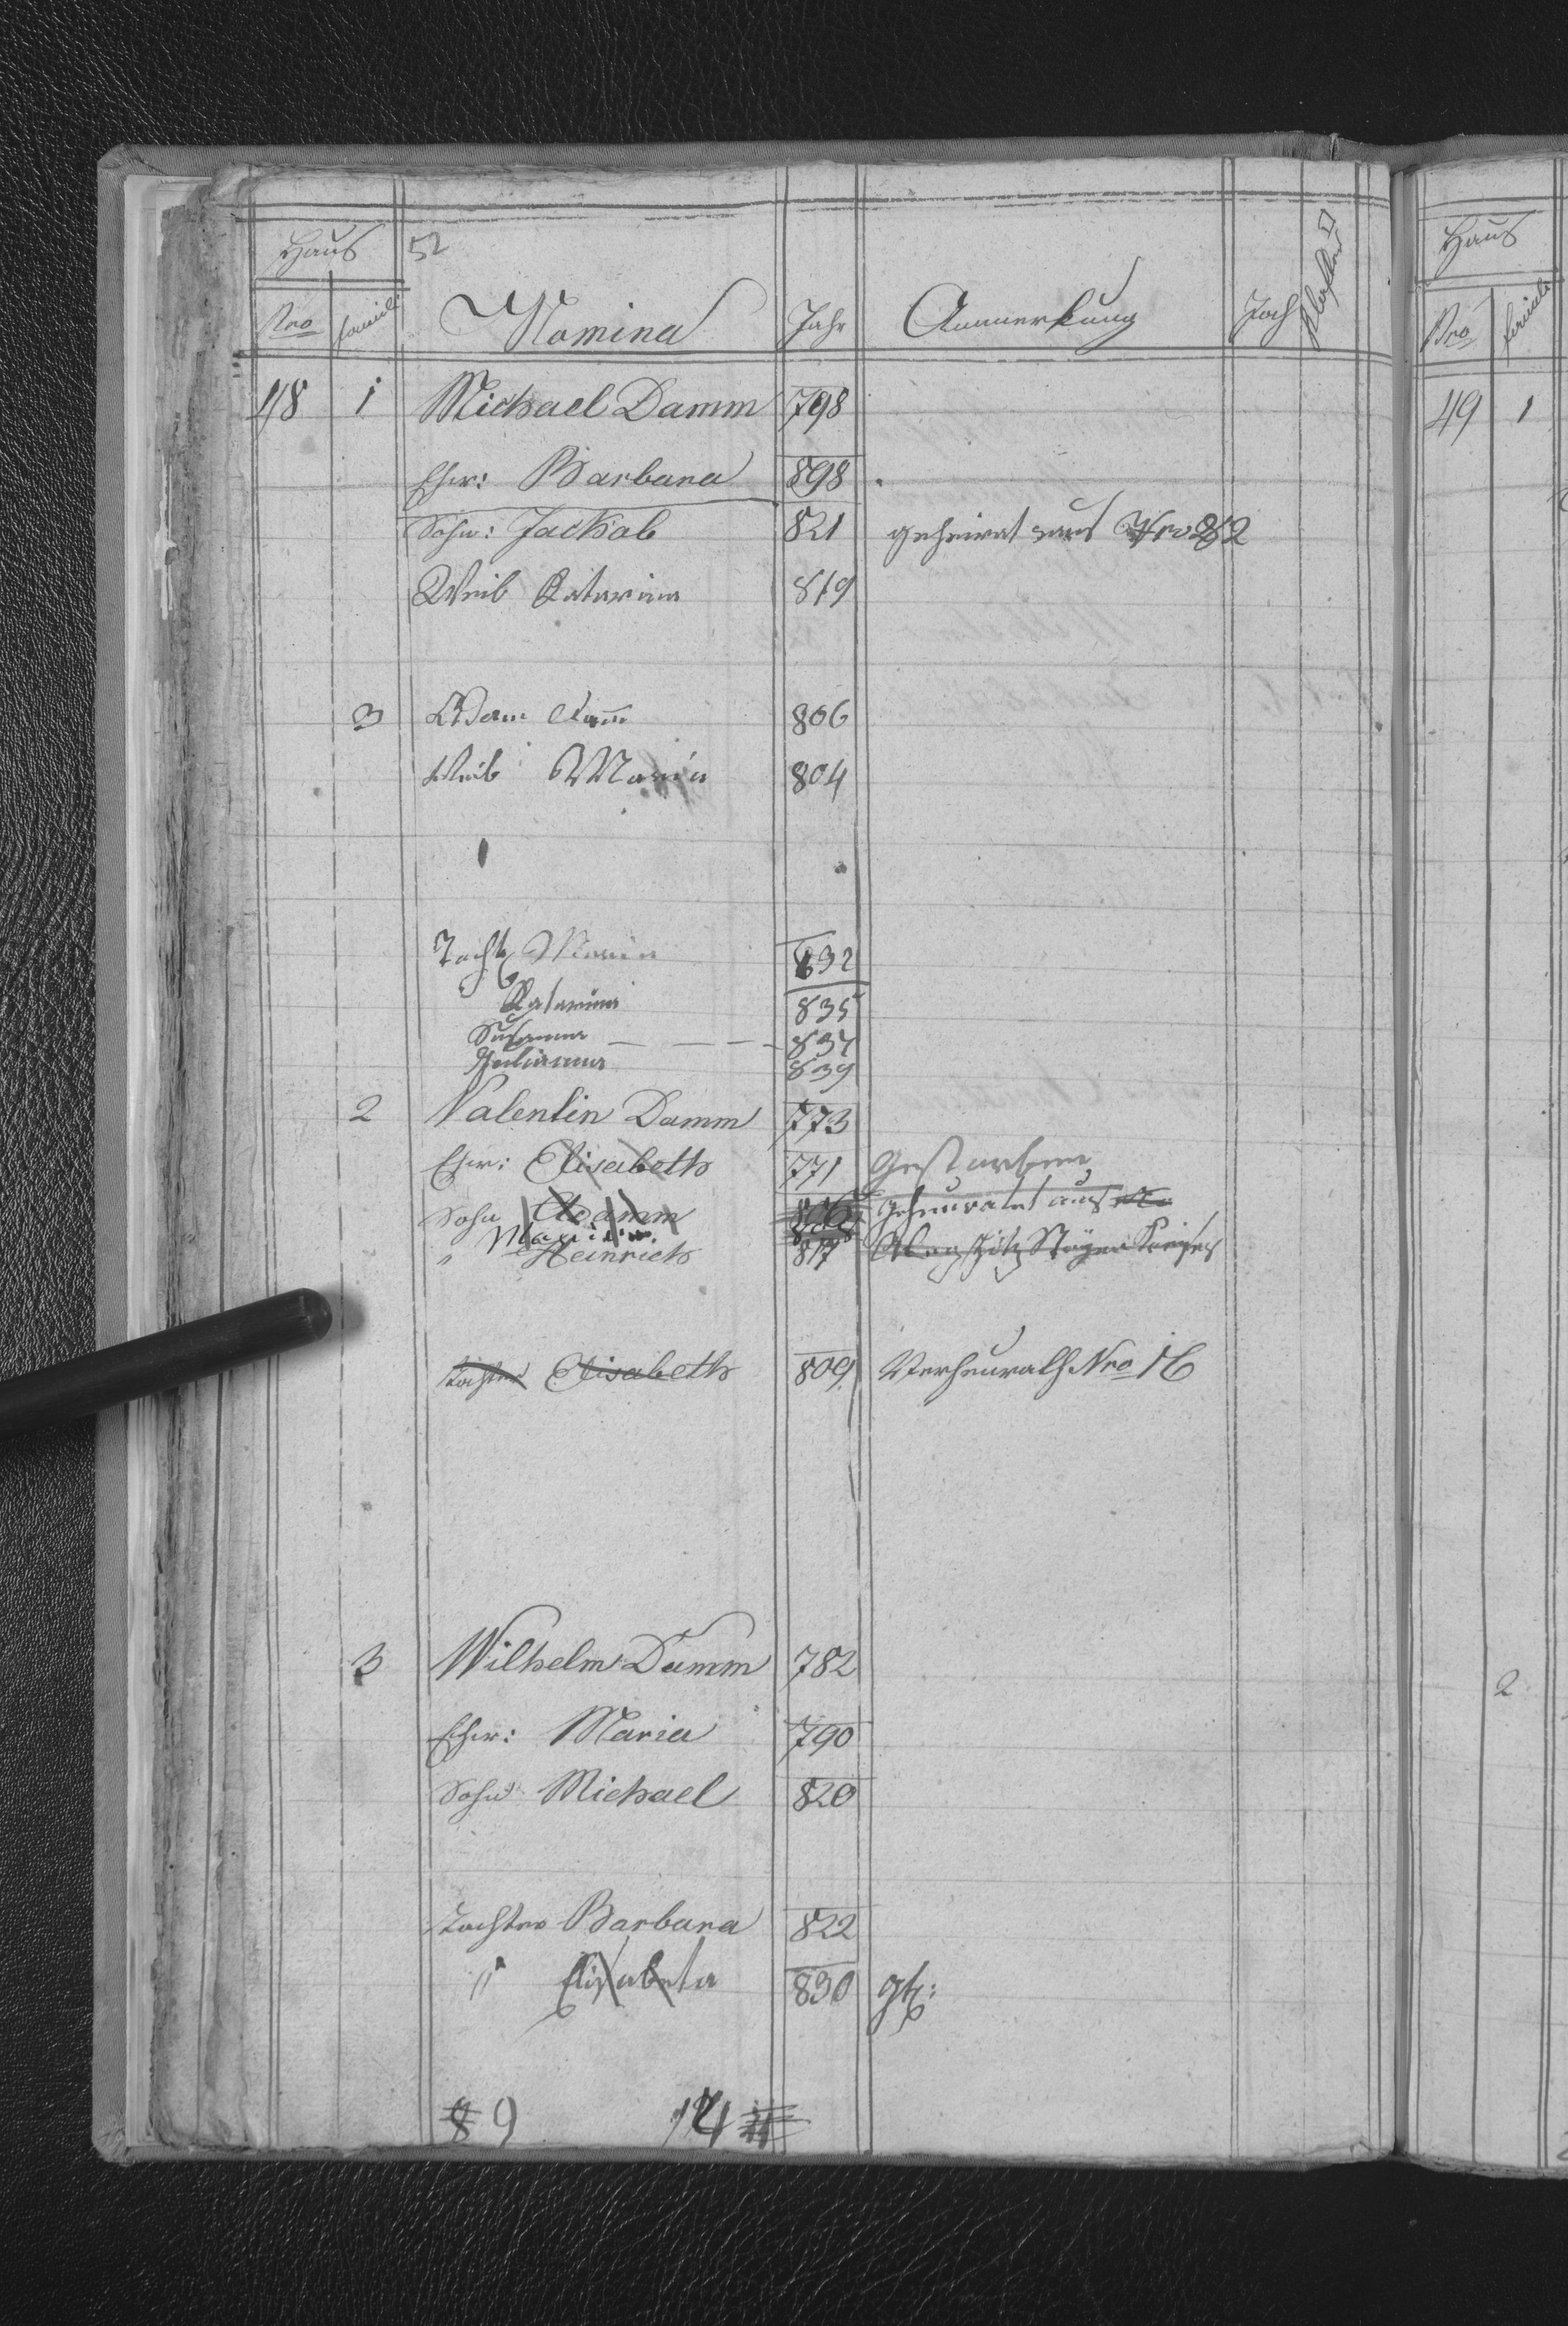 Haus 52
Nro famile Nomina Jahr Anmerkung Joch
48 1 Michael Damm 798
Ehw: Barbara 898
Sohn: Jackob 821 geheirat aus Nro 82
Weib Katarina 819
3 Adam Dam̅ 806
Weib Maria 804
Tocht Maria 832
Katarina 835
Susanna — — — 837
Julianna 839
2 Valentin Damm 773
Ehw: Elisabeth 771 Gestorben
Sohn Adamm 806 Geheuratet aus
Maria
" Heinrich 817
Tochter Elisabeth 809 Verheurath Nro 16
3 Wilhelm Damm 782
Ehw: Maria 790
Sohn Michael 820
Tochter Barbara 822
" Elisabeta 830 gst:
8 9 14
Haus
Nro famile
49 1
2